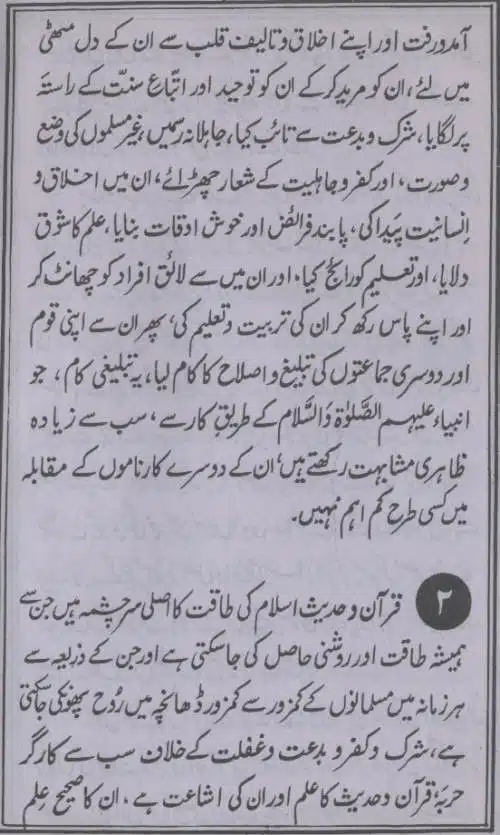 آمدورفت اور اپنے اخلاق و تالیف قلب سے ان کے دل مٹھی
میں لئے، ان کو مرید کر کے ان کو توحید اور اتباع سنت کے راستہ
پر لگایا، شرک و بدعت سے تائب کیا، جاہلانہ رسمیں، غیر مسلموں کی وضع
و صورت، اور کفر و جاہلیت کے شعار چھڑائے، ان میں اخلاق و
انسانیت پیدا کی، پابند فرائض اور خوش اوقات بنایا، علم کا شوق
دلایا، اور تعلیم کو رائج کیا، اور ان میں سے لائق افراد کو چھانٹ کر
اور اپنے پاس رکھ کر ان کی تربیت و تعلیم کی، پھر ان سے اپنی قوم
اور دوسری جماعتوں کی تبلیغ و اصلاح کا کام لیا، یہ تبلیغی کام، جو
انبیاء علیہم الصَّلوٰۃ وَالسَّلام کے طریق کار سے، سب سے زیادہ
ظاہری مشابہت رکھتے ہیں، ان کے دوسرے کارناموں کے مقابلہ
میں کسی طرح کم اہم نہیں.
۲ قرآن و حدیث اسلام کی طاقت کا اصلی سرچشمہ ہیں جن سے
ہمیشہ طاقت اور روشنی حاصل کی جاسکتی ہے اور جن کے ذریعہ سے
ہر زمانہ میں مسلمانوں کے کمزور سے کمزور ڈھانچہ میں رُوح پھونکی جاسکتی
ہے، شرک و کفر و بدعت و غفلت کے خلاف سب سے کارگر
حربہ قرآن و حدیث کا علم اور ان کی اشاعت ہے، ان کا صحیح علم